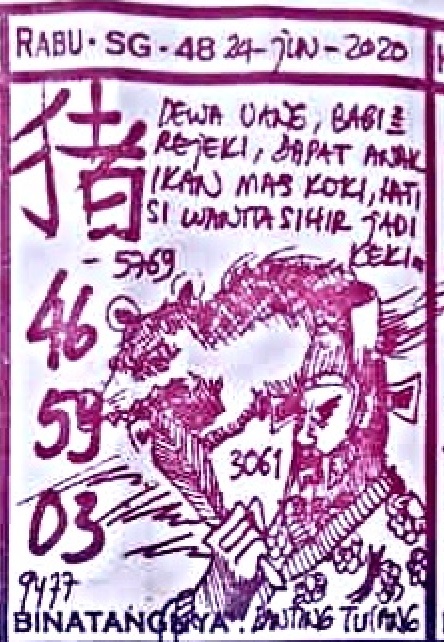 RABU · SG · 48 24-JUN-2020
猪
DEWA UANG, BAGI2
REJEKI, DAPAT ANAK
IKAN MAS KOKI, HATI
SI WANITA SIHIR JADI
KEKI.
- 5769
46
59
03
3061
9477
BINATANGNYA : BANTING TULANG